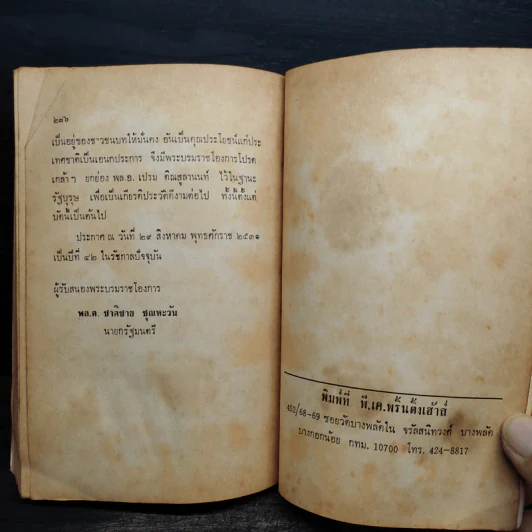 ๒๘๖
เป็นอยู่ของชาวชนบทให้มั่นคง อันเป็นคุณประโยชน์แก่ประ
เทศชาติเป็นเอนกประการ จึงมีพระบรมราชโองการโปรด
เกล้าฯ ยกย่อง พล.อ. เปรม ติณสูลานนท์ ไว้ในฐานะ
รัฐบุรุษ เพื่อเป็นเกียรติประวัติดีงามต่อไป ทั้งนี้ตั้งแต่
บัดนี้เป็นต้นไป
ประกาศ ณ วันที่ ๒๙ สิงหาคม พุทธศักราช ๒๕๓๑
เป็นปีที่ ๔๒ ในรัชกาลปัจจุบัน
ผู้รับสนองพระบรมราชโองการ
พล.ต. ชาติชาย ชุณหะวัน
นายกรัฐมนตรี
พิมพ์ที่ ที.เค.พริ้นติ้งเฮ้าส์
452/68-69 ซอยวัดบางพลัดใน จรัลสนิทวงศ์ บางพลัด
บางกอกน้อย กทม. 10700 โทร. 424-8817